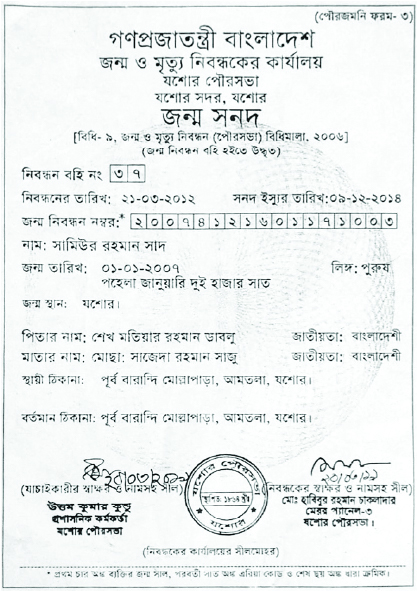 (পৌরজমনি ফরম- ৩)
গণপ্রজাতন্ত্রী বাংলাদেশ
জন্ম ও মৃত্যু নিবন্ধকের কার্যালয়
যশোর পৌরসভা
যশোর সদর, যশোর
জন্ম সনদ
[বিধি- ৯, জন্ম ও মৃত্যু নিবন্ধন (পৌরসভা) বিধিমালা, ২০০৬]
(জন্ম নিবন্ধন বহি হইতে উদ্ধৃত)
নিবন্ধন বহি নং ৩৭
নিবন্ধনের তারিখ: ২১-০৩-২০১২ সনদ ইস্যুর তারিখ:০৯-১২-২০১৪
জন্ম নিবন্ধন নম্বর:* ২০০৭৪১২১৬০১১৭১০০৩
নাম: সামিউর রহমান সাদ
জন্ম তারিখ: ০১-০১-২০০৭ লিঙ্গ: পুরুষ
পহেলা জানুয়ারি দুই হাজার সাত
জন্ম স্থান: যশোর।
পিতার নাম: শেখ মতিয়ার রহমান ডাবলু জাতীয়তা: বাংলাদেশী
মাতার নাম: মোছা: সাজেদা রহমান সাজু জাতীয়তা: বাংলাদেশী
স্থায়ী ঠিকানা: পূর্ব বারান্দি মোল্লাপাড়া, আমতলা, যশোর।
বর্তমান ঠিকানা: পূর্ব বারান্দি মোল্লাপাড়া, আমতলা, যশোর।
যশোর পৌরসভা
স্থাপিত: ১৮৬৪ খ্রী:
যশোর
(যাচাইকারীর স্বাক্ষর ও নামসহ সীল) (নিবন্ধকের স্বাক্ষর ও নামসহ সীল)
উত্তম কুমার কুন্ডু মোঃ হাবিবুর রহমান চাকলাদার
প্রশাসনিক কর্মকর্তা মেয়র প্যানেল-৩
যশোর পৌরসভা যশোর পৌরসভা।
(নিবন্ধকের কার্যালয়ের সীলমোহর)
* প্রথম চার অঙ্ক ব্যক্তির জন্ম সাল, পরবর্তী সাত অঙ্ক এরিয়া কোড ও শেষ ছয় অঙ্ক দ্বারা ক্রমিক।